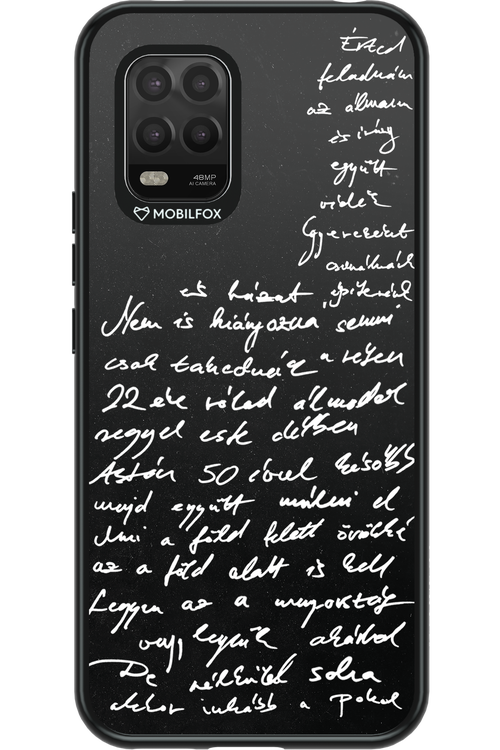 48MP
AI CAMERA
MOBILFOX
Érted
feladnám
az álmaim
és irány
együtt
vidék
Gyerekeket
csinálnák
és házat építenék
Nem is hiányozna semmi
csak takednák a részem
22 éve rólad álmodok
reggel este délben
Aztán 50 évvel később
majd együtt múlni el
Ami a föld felett örökké
az a föld alatt is kell
Legyen az a mennyország
vagy legyünk akárhol
De nélküled soha
akkor inkább a pokol